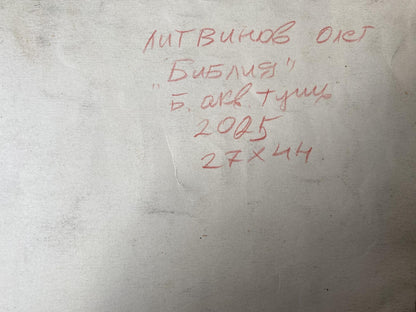 ЛИТВИНОВ ОЛЕГ
"Библия"
Б. акв. тушь
2025
27х44.